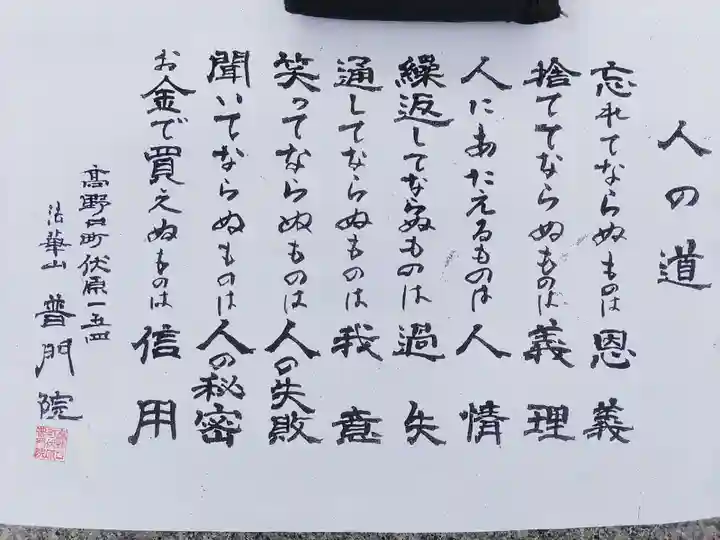 人の道
忘れてならぬものは 恩義
捨ててならぬものは 義理
人にあたえるものは 人情
繰返してならぬものは 過失
通してならぬものは 我意
笑ってならぬものは 人の失敗
聞いてならぬものは 人の秘密
お金で買えぬものは 信用
高野口町伏原一五四
法華山 普門院